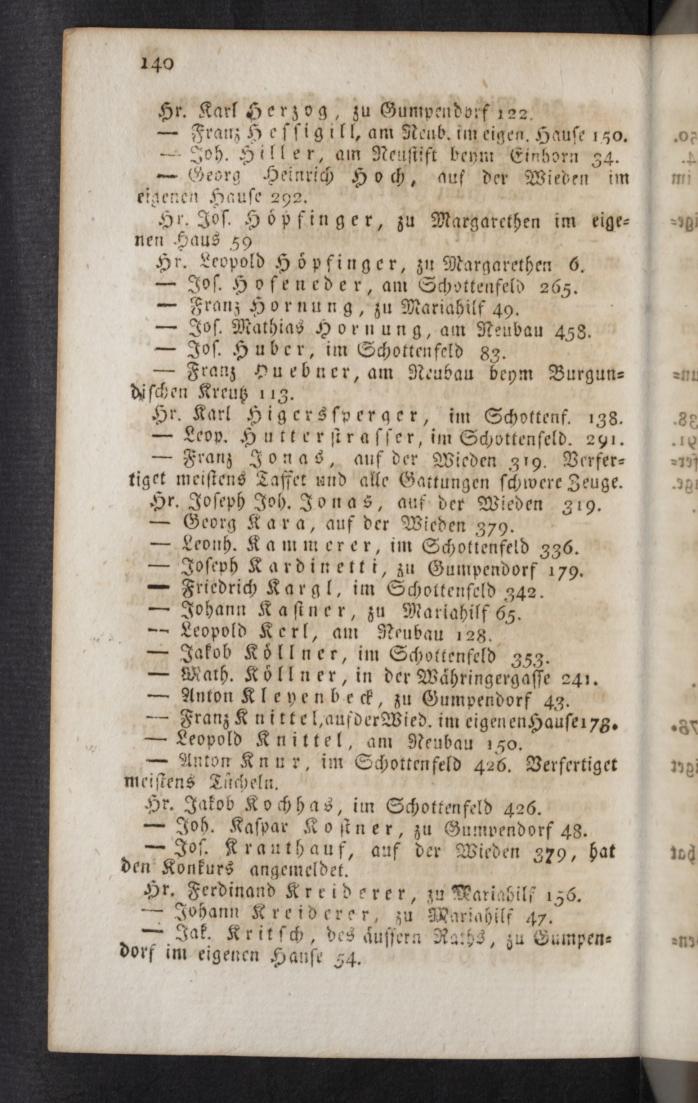 140
Hr. Karl Herzog, zu Gumpendorf 122.
— Franz Hessigill, am Neub. im eigen. Hause 150.
— Joh. Hiller, am Neustift beym Einhorn 34.
— Georg Heinrich Hoch, auf der Wieden im
eigenen Hause 292.
Hr. Jos. Höpfinger, zu Margarethen im eige=
nen Haus 59
Hr. Leopold Höpfinger, zu Margarethen 6.
— Jos. Hofeneder, am Schottenfeld 265.
— Franz Hornung, zu Mariahilf 49.
— Jos. Mathias Hornung, am Neubau 458.
— Jos. Huber, im Schottenfeld 83.
— Franz Huebner, am Neubau beym Burgun=
dischen Kreutz 113.
Hr. Karl Higerssperger, im Schottenf. 138.
— Leop. Hutterstrasser, im Schottenfeld. 291.
— Franz Jonas, auf der Wieden 319. Verfer=
tiget meistens Taffet und alle Gattungen schwere Zeuge.
Hr. Joseph Joh. Jonas, auf der Wieden 319.
— Georg Kara, auf der Wieden 379.
— Leonh. Kammerer, im Schottenfeld 336.
— Joseph Kardinetti, zu Gumpendorf 179.
— Friedrich Kargl, im Schottenfeld 342.
— Johann Kastner, zu Mariahilf 65.
— Leopold Kerl, am Neubau 128.
— Jakob Köllner, im Schottenfeld 353.
— Math. Köllner, in der Währingergasse 241.
— Anton Kleyenbeck, zu Gumpendorf 43.
— Franz Knittel, auf der Wied. im eigenen Hause 178.
— Leopold Knittel, am Neubau 150.
— Anton Knur, im Schottenfeld 426. Verfertiget
meistens Tücheln.
Hr. Jakob Kochhas, im Schottenfeld 426.
— Joh. Kaspar Kostner, zu Gumpendorf 48.
— Jos. Krauthauf, auf der Wieden 379, hat
den Konkurs angemeldet.
Hr. Ferdinand Kreiderer, zu Mariahilf 156.
— Johann Kreiderer, zu Mariahilf 47.
— Jak. Kritsch, des äussern Raths, zu Gumpen=
dorf im eigenen Hause 54.